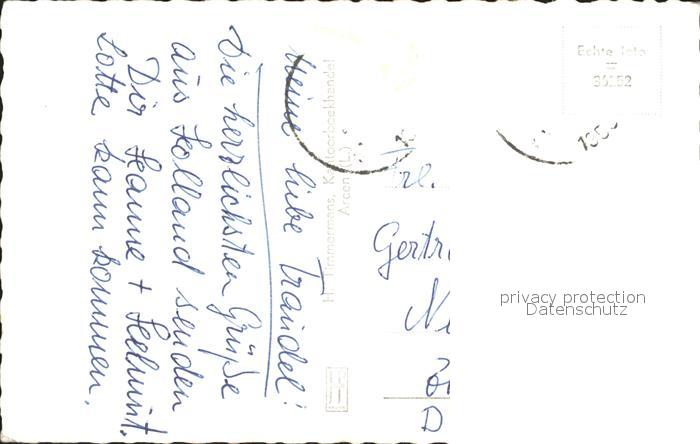 Meine liebe Traudel!
Die herzlichsten Grüße
aus Holland senden
Dir Hanne + Helmut.
Lotte kann kommen.
H. Timmermans, Kantoorboekhandel
Arcen (L.)
Echte foto
36152
Frl.
Gertr
Ne
D
privacy protection
Datenschutz